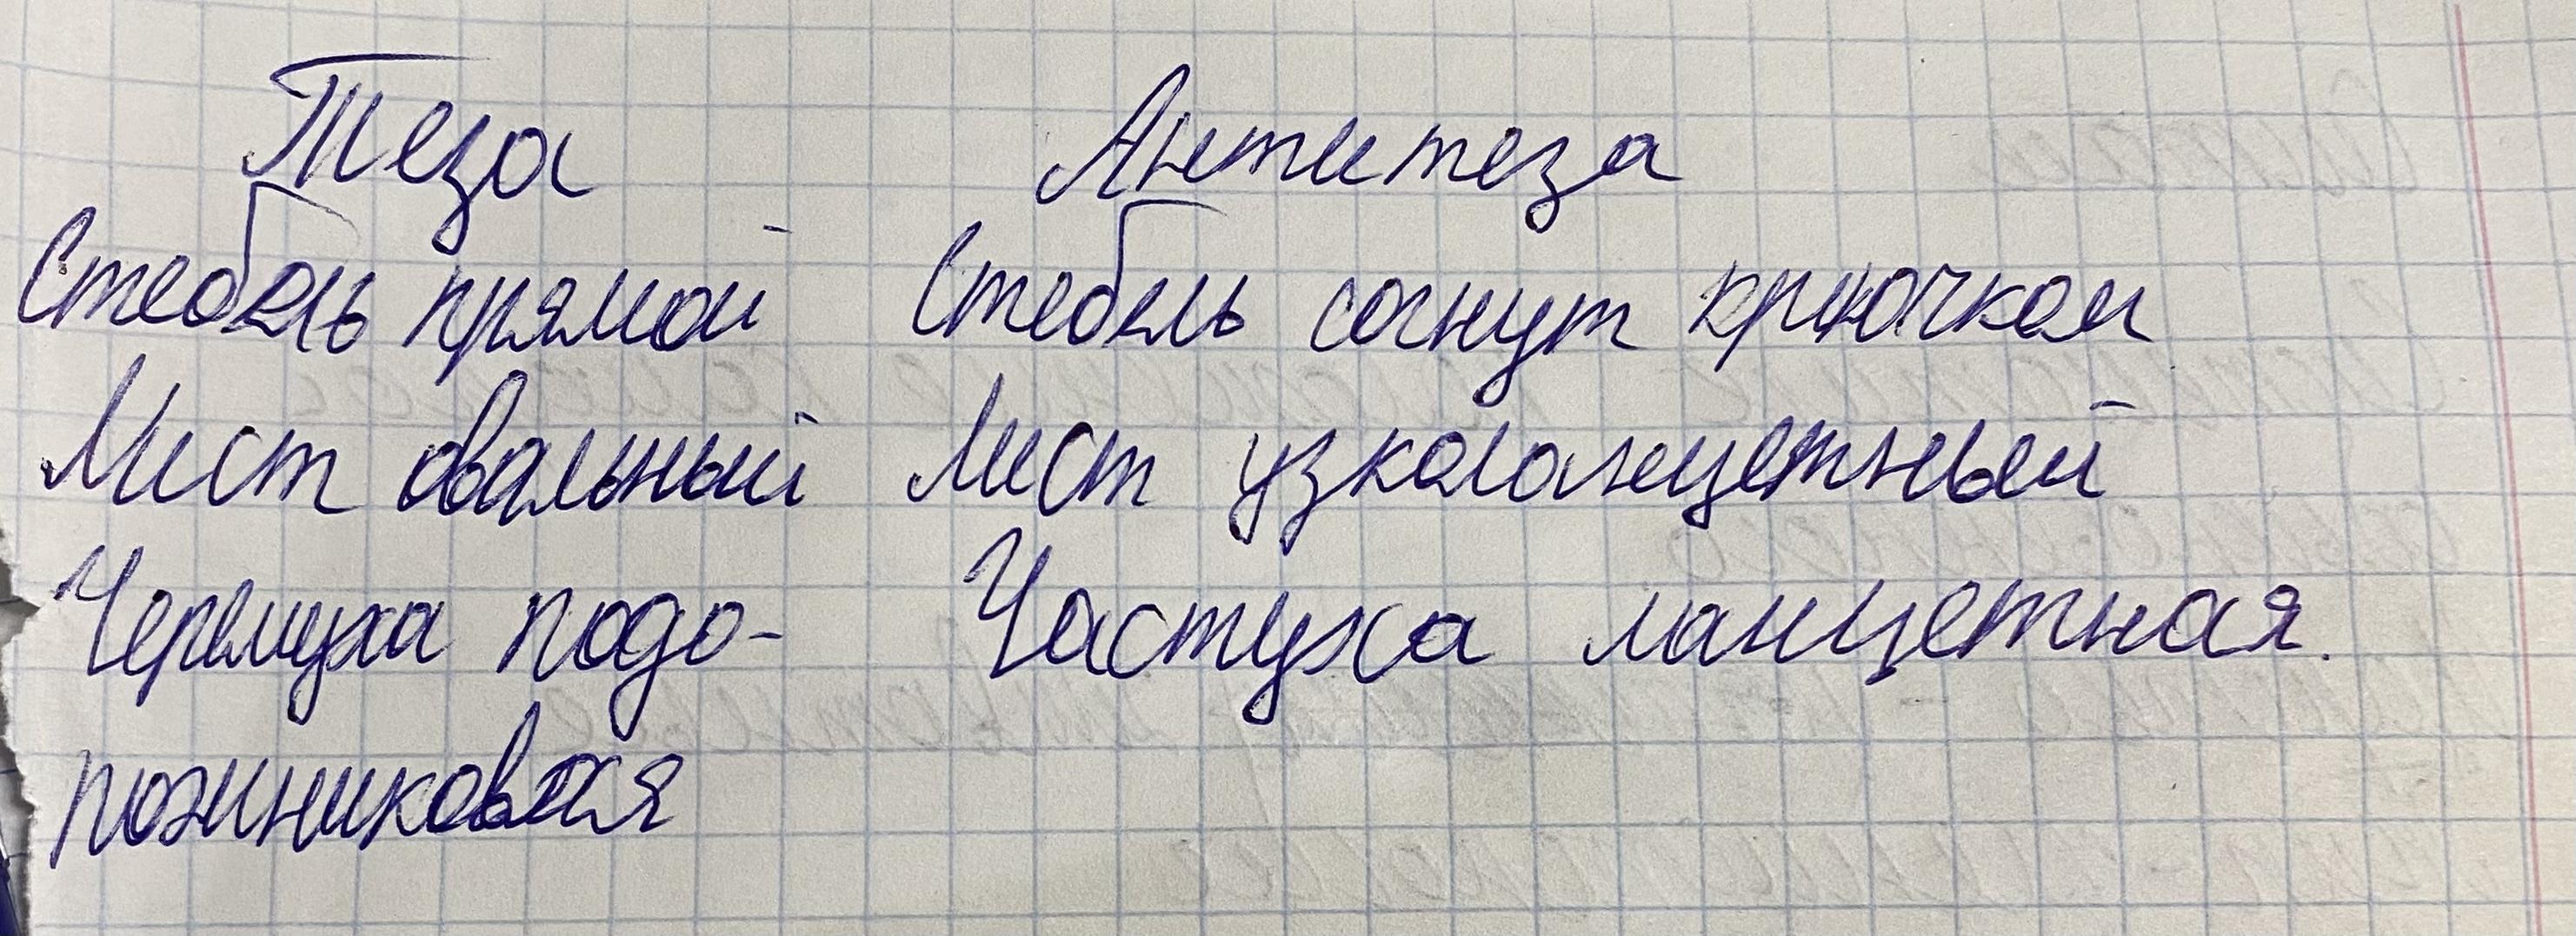 Теза Антитеза
Стебель прямой Стебель согнут крючком
Лист овальный Лист узколанцетный
Черемуха подо- Частуха ланцетная.
рожниковая